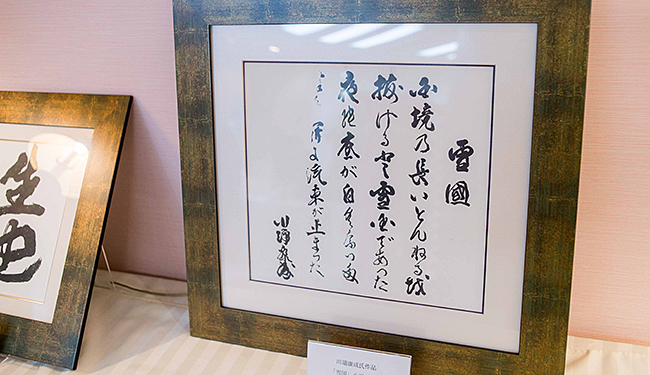 雪國
国境の長いとんねるを
抜けると雪国であった
夜の底が白くなった
汽車が止まった
川端康成
川端康成氏作品